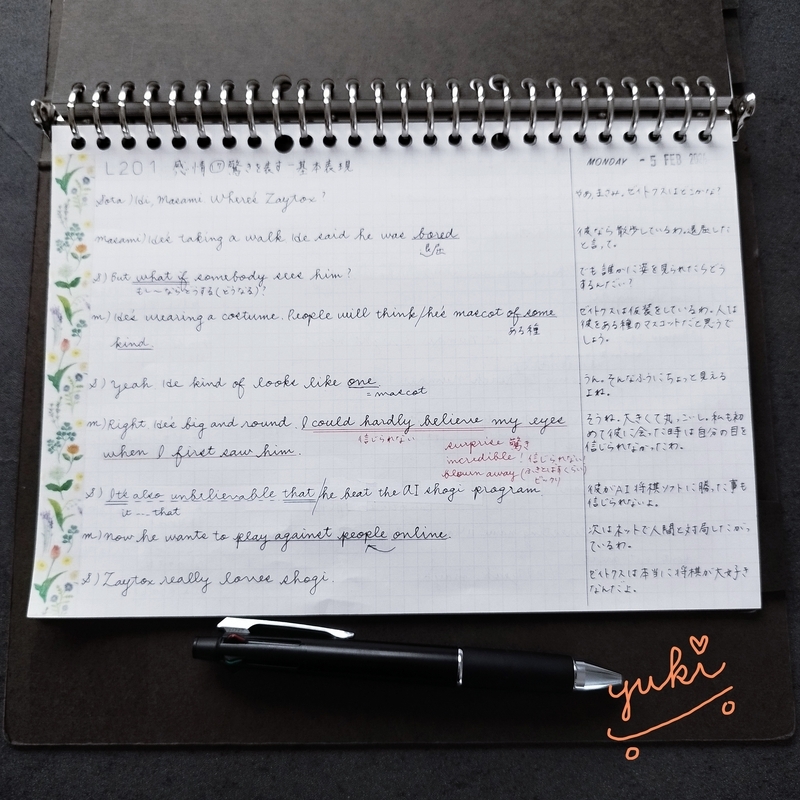 L201 感情⑰驚きを表す-基本表現
MONDAY - 5 FEB
Sora) Hi, Masami Where's Zaytox?
やあ、まさみ。ゼイトクスはどこかな?
masami) He's taking a walk He said he was bored
退屈
彼なら散歩しているわ。退屈した
と言って。
S) But what if somebody sees him?
もし〜ならどうする(どうなる)?
でも誰かに姿を見られたらどう
するんだい?
m) He's wearing a costume. People will think/he's mascot of some
ある種
kind.
ゼイトクスは仮装をしているわ。人は
彼をある種のマスコットだと思うで
しょう。
S) Yeah He kind of looks like one.
=mascot
うん。そんなふうにちょっと見える
よね。
m) Right He's big and round. I could hardly believe my eyes
信じられない
when I first saw him.
surprise 驚き
incredible! 信じられない
blown away (ふきとばすくらい
ビックリ)
そうね。大きくて丸っこいし。私も初
めて彼に会った時は自分の目を
信じられなかったわ。
S) It's also unbelievable that/he beat the AI shogi program
it --- that
彼がAI将棋ソフトに勝った事も
信じられないよ。
m) now he wants to play against people online.
次はネットで人間と対局したがっ
ているわ。
S) Zaytox really loves shogi.
ゼイトクスは本当に将棋が大好き
なんだよ。
yuki